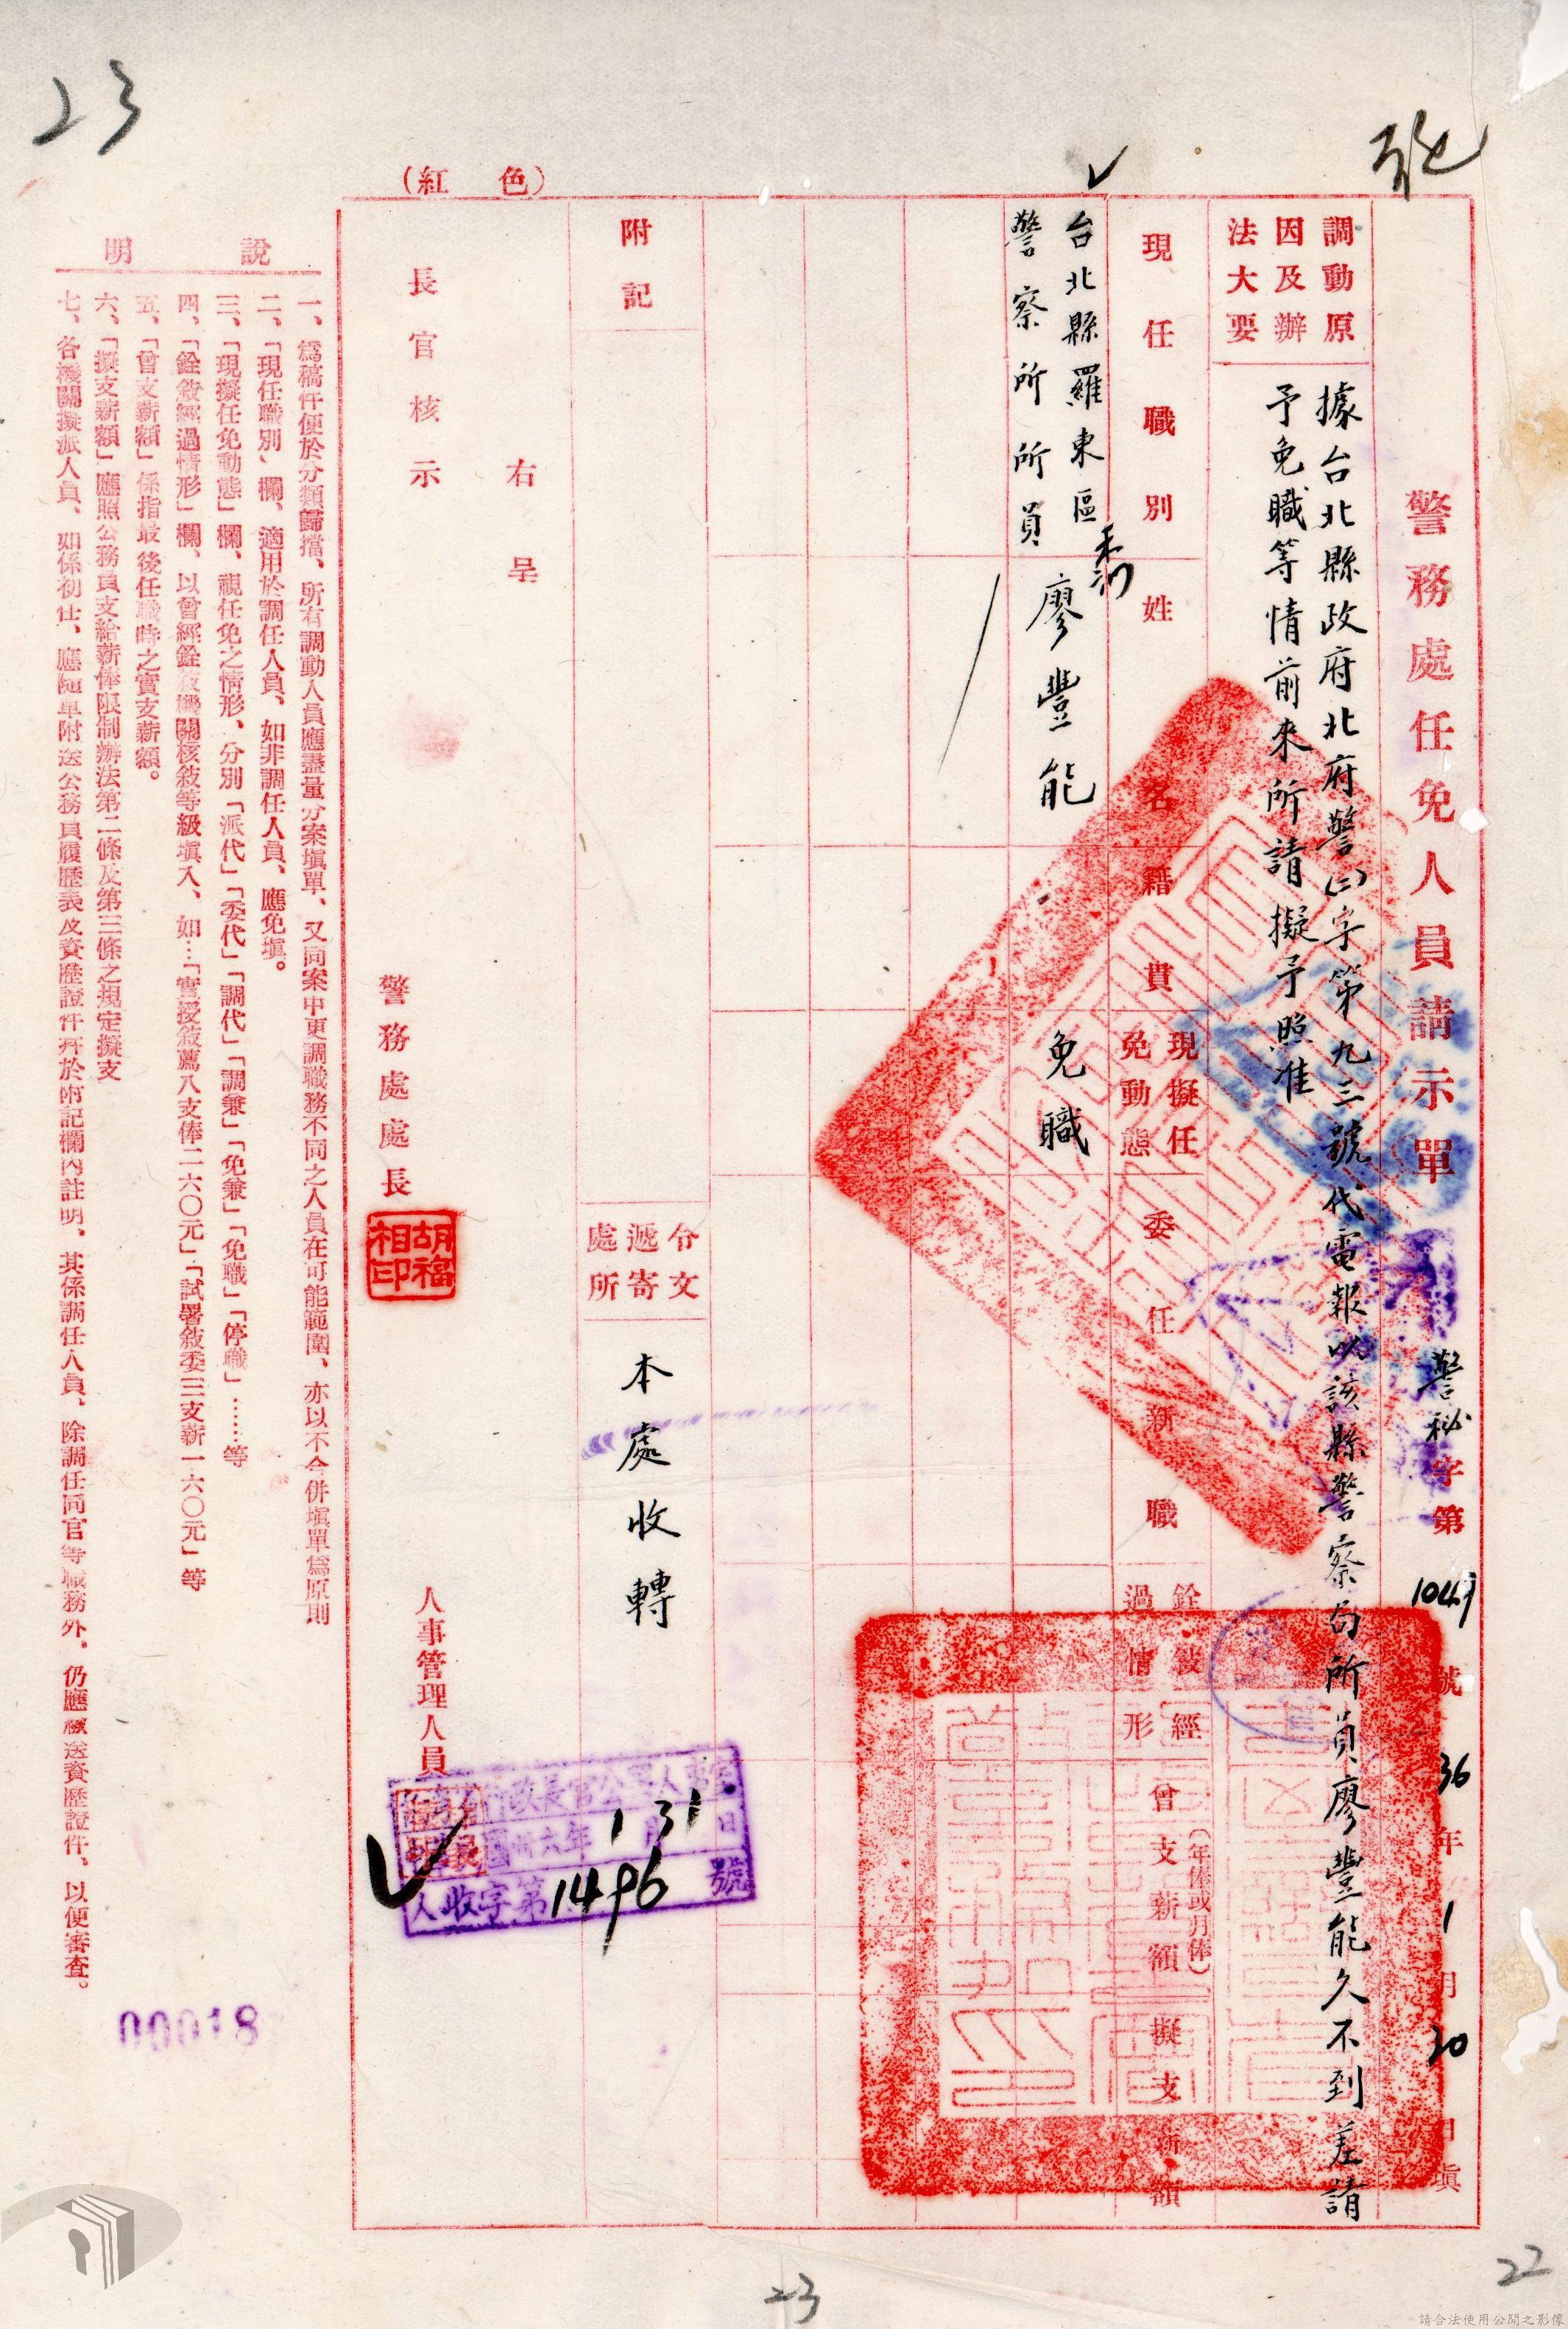 23
(紅色)
警務處任免人員請示單
警秘字第1049號
36年1月30日填
調動原因及辦法大要
據台北縣政府北府警(二)字第九三號代電報以該縣警察局所員廖豐能久不到差請
予免職等情前來所請擬予照准
現任職別
姓名
籍貫
現擬任免動態
委任新職
銓敍經過情形
曾支薪額
(年俸或月俸)
擬支薪額
台北縣羅東區
警察所所員
廖豐能
免職
附記
令文遞寄處所
本處收轉
右呈
長官核示
警務處處長
胡福相印
人事管理人員
行政長官公署人事室
國卅六年1月31日
人收字第1496號
說明
一、爲稿件便於分類歸擋、所有調動人員應盡量分案塡單、又同案中更調職務不同之人員在可能範圍、亦以不合併塡單爲原則
二、「現任職別」欄、適用於調任人員、如非調任人員、應免塡。
三、「現擬任免動態」欄、視任免之情形、分別「派代」「委代」「調代」「調兼」「免兼」「免職」「停職」……等
四、「銓敍經過情形」欄、以曾經銓敍機關核敍等級塡入、如…「實授敍薦八支俸二六〇元」「試署敍委三支薪一六〇元」等
五、「曾支薪額」係指最後任職時之實支薪額。
六、「擬支薪額」應照公務員支給薪俸限制辦法第二條及第三條之規定擬支
七、各機關擬派人員、如係初任、應隨單附送公務員履歷表及資歷證件幷於附記欄內註明、其係調任人員、除調任同官等職務外、仍應檢送資歷證件、以便審查。
00018
23
22
請合法使用公開之影像